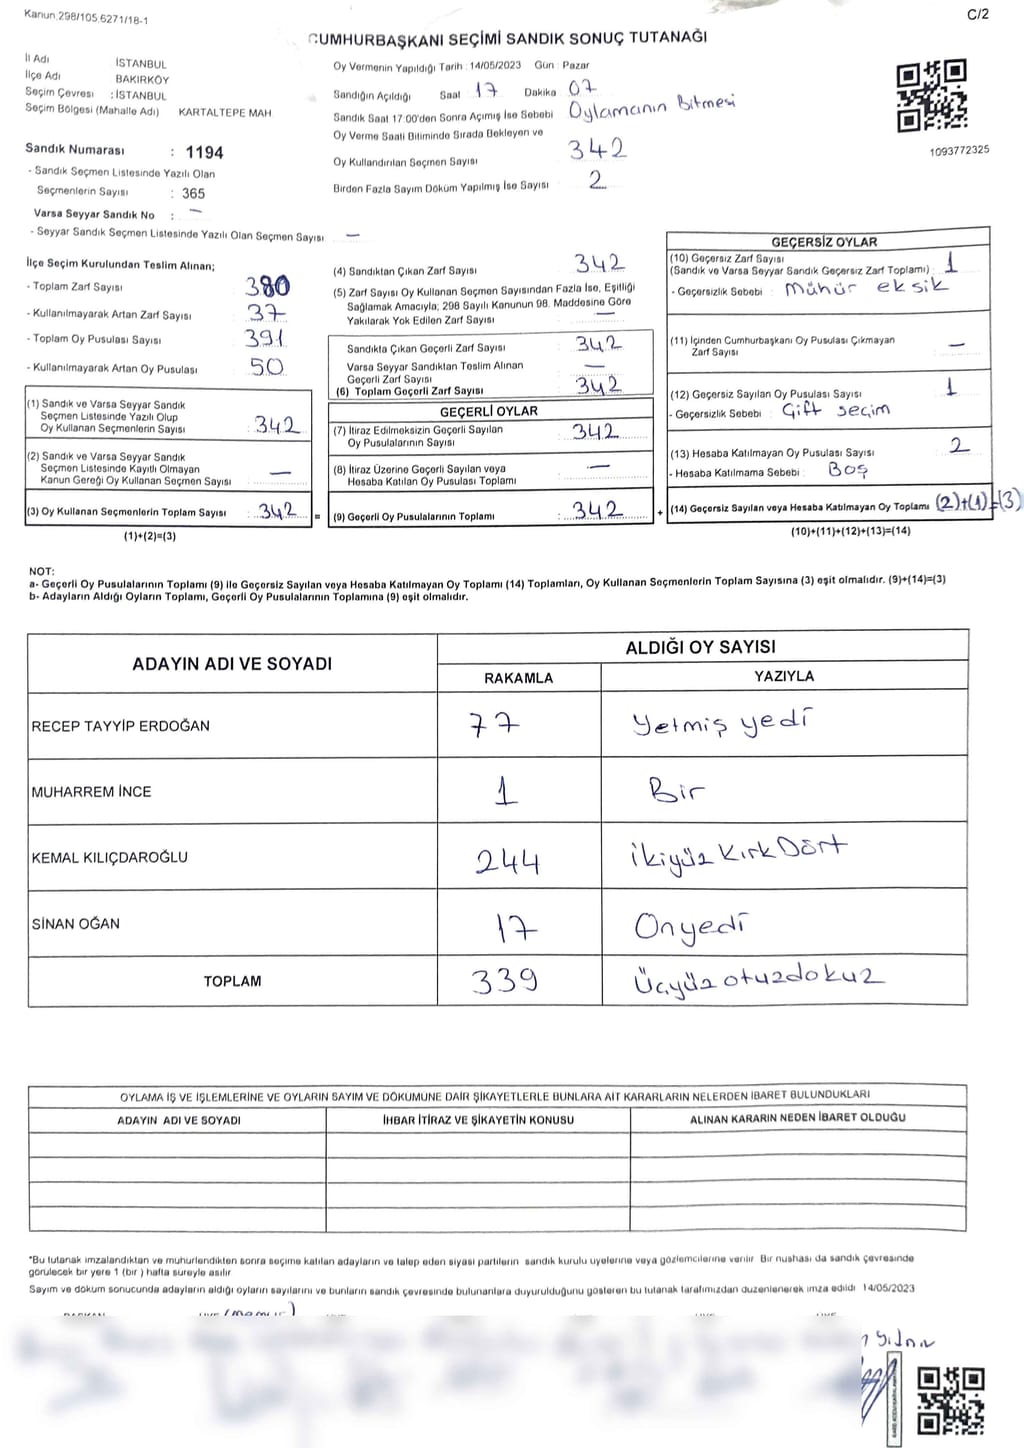 Kanun.298/105.6271/18-1
C/2
CUMHURBAŞKANI SEÇİMİ SANDIK SONUÇ TUTANAĞI
İl Adı İSTANBUL
İlçe Adı BAKIRKÖY
Seçim Çevresi : İSTANBUL
Seçim Bölgesi (Mahalle Adı) KARTALTEPE MAH
Sandık Numarası : 1194
- Sandık Seçmen Listesinde Yazılı Olan
Seçmenlerin Sayısı : 365
Varsa Seyyar Sandık No : —
- Seyyar Sandık Seçmen Listesinde Yazılı Olan Seçmen Sayısı —
Oy Vermenin Yapıldığı Tarih : 14/05/2023 Gün : Pazar
Sandığın Açıldığı Saat 17 Dakika 07
Sandık Saat 17:00'den Sonra Açımış İse Sebebi Oylamanın Bitmesi
Oy Verme Saati Bitiminde Sırada Bekleyen ve
Oy Kullandırılan Seçmen Sayısı 342
Birden Fazla Sayım Döküm Yapılmış İse Sayısı 2
1093772325
İlçe Seçim Kurulundan Teslim Alınan;
- Toplam Zarf Sayısı 380
- Kullanılmayarak Artan Zarf Sayısı 37
- Toplam Oy Pusulası Sayısı 391
- Kullanılmayarak Artan Oy Pusulası 50
(1) Sandık ve Varsa Seyyar Sandık
Seçmen Listesinde Yazılı Olup
Oy Kullanan Seçmenlerin Sayısı : 342
(2) Sandık ve Varsa Seyyar Sandık
Seçmen Listesinde Kayıtlı Olmayan
Kanun Gereği Oy Kullanan Seçmen Sayısı : —
(3) Oy Kullanan Seçmenlerin Toplam Sayısı : 342 =
(1)+(2)=(3)
(4) Sandıktan Çıkan Zarf Sayısı : 342
(5) Zarf Sayısı Oy Kullanan Seçmen Sayısından Fazla İse, Eşitliği
Sağlamak Amacıyla; 298 Sayılı Kanunun 98. Maddesine Göre
Yakılarak Yok Edilen Zarf Sayısı : —
Sandıkta Çıkan Geçerli Zarf Sayısı : 342
Varsa Seyyar Sandıktan Teslim Alınan
Geçerli Zarf Sayısı : —
(6) Toplam Geçerli Zarf Sayısı : 342
GEÇERLİ OYLAR
(7) İtiraz Edilmeksizin Geçerli Sayılan
Oy Pusulalarının Sayısı : 342
(8) İtiraz Üzerine Geçerli Sayılan veya
Hesaba Katılan Oy Pusulası Toplamı : —
(9) Geçerli Oy Pusulalarının Toplamı : 342 +
GEÇERSİZ OYLAR
(10) Geçersiz Zarf Sayısı
(Sandık ve Varsa Seyyar Sandık Geçersiz Zarf Toplamı) : 1
- Geçersizlik Sebebi : Mühür eksik
(11) İçinden Cumhurbaşkanı Oy Pusulası Çıkmayan
Zarf Sayısı : —
(12) Geçersiz Sayılan Oy Pusulası Sayısı : 1
- Geçersizlik Sebebi : Çift seçim
(13) Hesaba Katılmayan Oy Pusulası Sayısı : 2
- Hesaba Katılmama Sebebi : Boş
(14) Geçersiz Sayılan veya Hesaba Katılmayan Oy Toplamı (2)+(1)=(3)
(10)+(11)+(12)+(13)=(14)
NOT:
a- Geçerli Oy Pusulalarının Toplamı (9) ile Geçersiz Sayılan veya Hesaba Katılmayan Oy Toplamı (14) Toplamları, Oy Kullanan Seçmenlerin Toplam Sayısına (3) eşit olmalıdır. (9)+(14)=(3)
b- Adayların Aldığı Oyların Toplamı, Geçerli Oy Pusulalarının Toplamına (9) eşit olmalıdır.
ADAYIN ADI VE SOYADI
ALDIĞI OY SAYISI
RAKAMLA YAZIYLA
RECEP TAYYİP ERDOĞAN 77 Yetmiş yedi
MUHARREM İNCE 1 Bir
KEMAL KILIÇDAROĞLU 244 ikiyüz Kırk Dört
SİNAN OĞAN 17 Onyedi
TOPLAM 339 Üçyüz otuzdokuz
OYLAMA İŞ VE İŞLEMLERİNE VE OYLARIN SAYIM VE DÖKÜMÜNE DAİR ŞİKAYETLERLE BUNLARA AİT KARARLARIN NELERDEN İBARET BULUNDUKLARI
ADAYIN ADI VE SOYADI İHBAR İTİRAZ VE ŞİKAYETİN KONUSU ALINAN KARARIN NEDEN İBARET OLDUĞU
*Bu tutanak imzalandıktan ve mühürlendikten sonra seçime katılan adayların ve talep eden siyasi partilerin sandık kurulu üyelerine veya gözlemcilerine verilir Bir nushası da sandık çevresinde
görülecek bir yere 1 (bir ) hafta süreyle asılır
Sayım ve döküm sonucunda adayların aldığı oyların sayılarını ve bunların sandık çevresinde bulunanlara duyurulduğunu gösteren bu tutanak tarafımızdan düzenlenerek imza edildi 14/05/2023